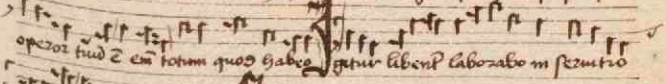 operor tuū ē em̄ totum quod habeo Igitur libent̄ laborabo in seruitio